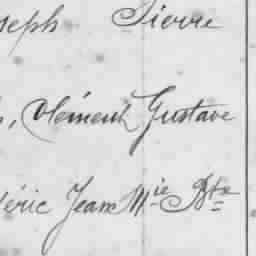 seph Pierre
s, Clément Gustave
déric Jean Mie Bte